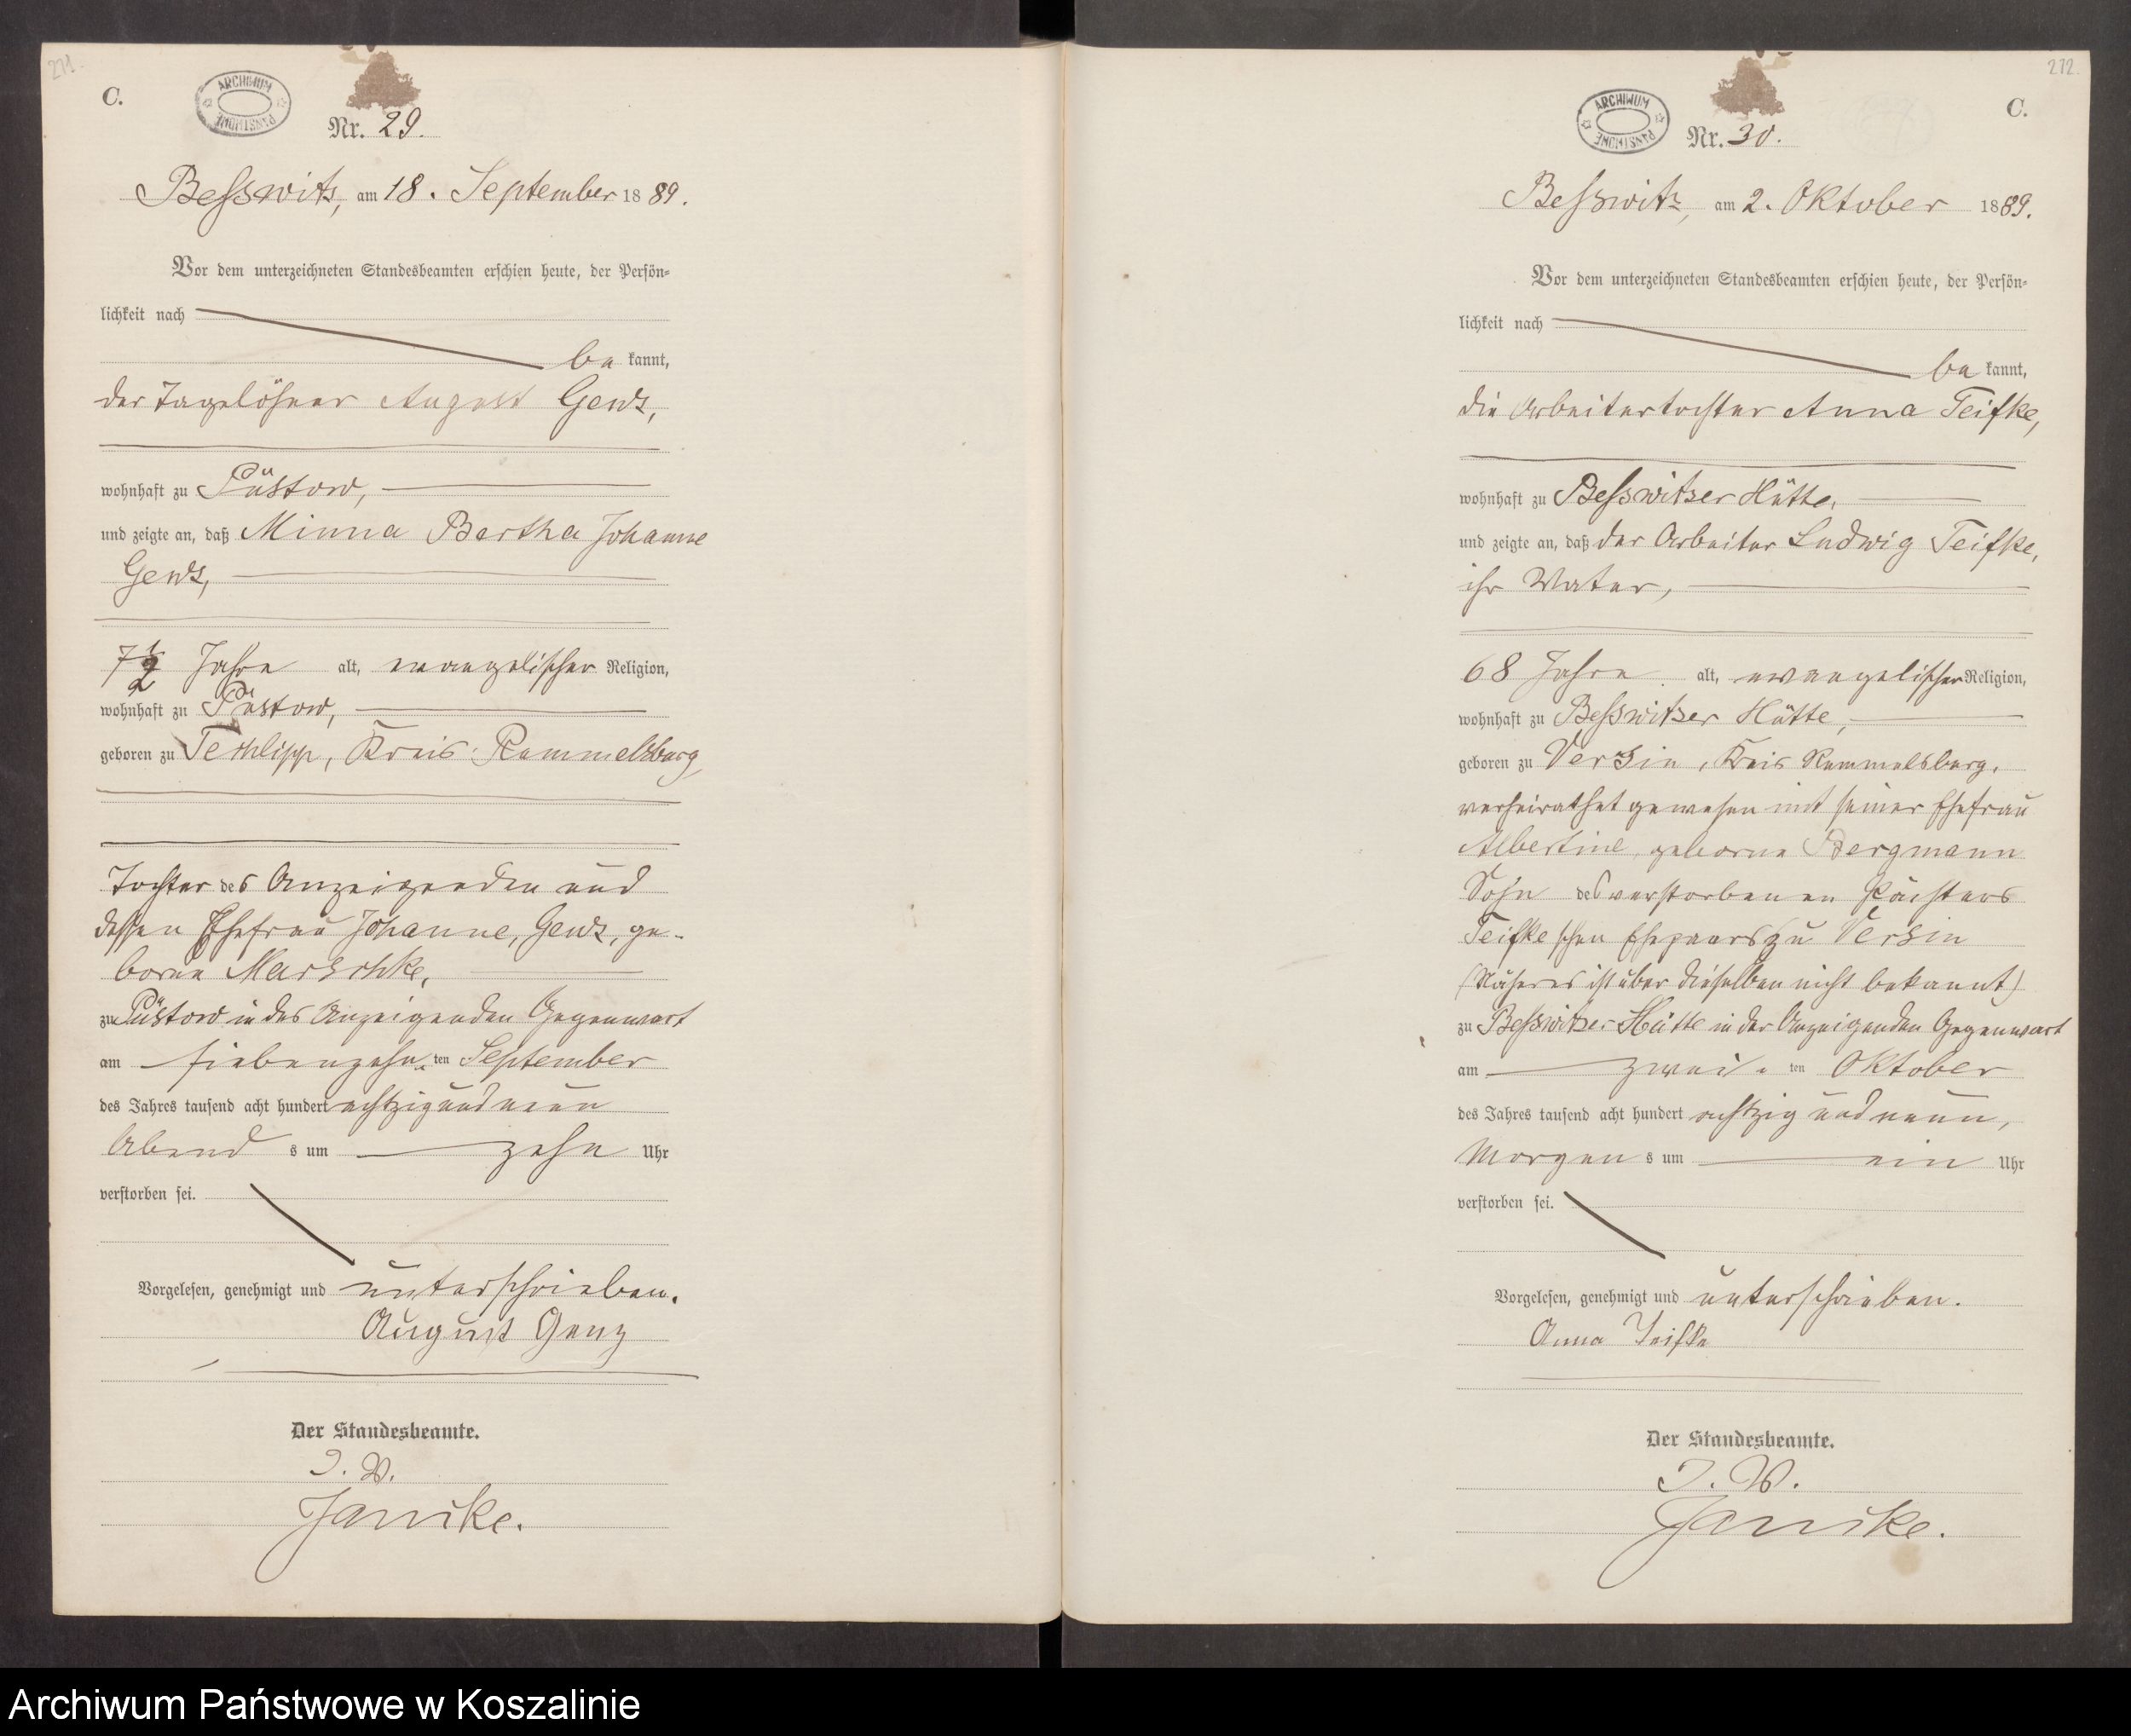 271.
C.
ARCHIWUM PAŃSTWOWE
Nr. 29.
Beßwitz, am 18. September 1889.
Vor dem unterzeichneten Standesbeamten erschien heute, der Persön-
lichkeit nach
be kannt,
der Tagelöhner August Genz,
wohnhaft zu Püstow,
und zeigte an, daß Minna Bertha Johanne
Genz,
7 1/2 Jahre alt, evangelischer Religion,
wohnhaft zu Püstow,
geboren zu Techlipp, Kreis Rummelsburg
Tochter des Anzeigenden und
dessen Ehefrau Johanne, Genz, ge-
borne
zu Püstow in des Anzeigenden Gegenwart
am siebenzehn ten September
des Jahres tausend acht hundert achtzig und neun
Abend s um zehn Uhr
verstorben sei.
Vorgelesen, genehmigt und unterschrieben.
August Genz
Der Standesbeamte.
I. V.
Janike.
272.
C.
ARCHIWUM PAŃSTWOWE
Nr. 30.
Beßwitz, am 2. Oktober 1889.
Vor dem unterzeichneten Standesbeamten erschien heute, der Persön-
lichkeit nach
be kannt,
die Arbeitertochter Anna Teifke,
wohnhaft zu Beßwitzer Hütte,
und zeigte an, daß der Arbeiter Ludwig Teifke,
ihr Vater,
68 Jahre alt, evangelischer Religion,
wohnhaft zu Beßwitzer Hütte,
geboren zu Versin, Kreis Rummelsburg,
verheirathet gewesen mit seiner Ehefrau
Albertine, geborne Bergmann
Sohn des verstorbenen Pächters
Teifke schen Ehepaars zu Versin
(Näheres ist über dieselben nicht bekannt)
zu Beßwitzer Hütte in der Anzeigenden Gegenwart
am zwei ten Oktober
des Jahres tausend acht hundert achtzig und neun,
Morgen s um ein Uhr
verstorben sei.
Vorgelesen, genehmigt und unterschrieben.
Anna Teifke
Der Standesbeamte.
I. V.
Janike.
Archiwum Państwowe w Koszalinie